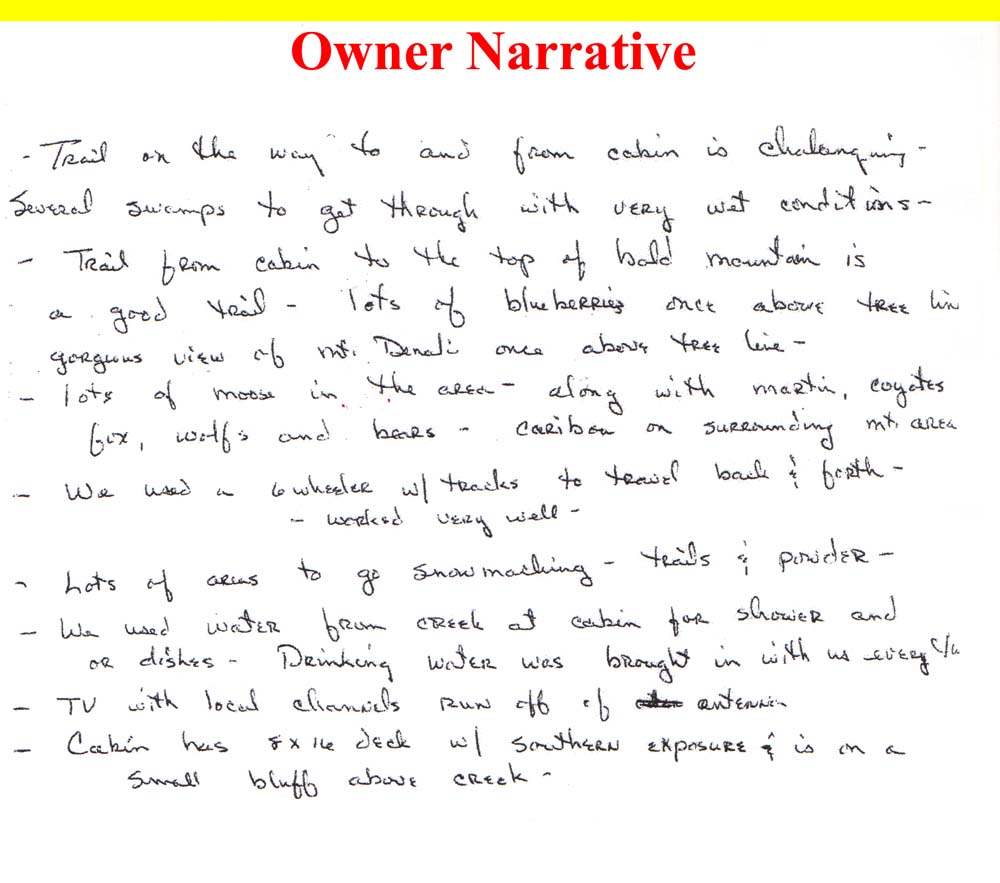 Owner Narrative
- Trail on the way to and from cabin is chalenging -
Several swamps to get through with very wet conditions -
- Trail from cabin to the top of bald mountain is
a good trail - lots of blueberries once above tree lin
gorgeous view of mt. Denali once above tree line -
- lots of moose in the area - along with martin, coyotes
fox, wolf's and bears - caribou on surrounding mt. area
- We used a 6 wheeler w/ tracks to travel back & forth -
- worked very well -
- Lots of areas to go snowmaching - trails & powder -
- We used water from creek at cabin for shower and
or dishes - Drinking water was brought in with us every
- TV with local channels run off of antenna
- Cabin has 8 x 16 deck w/ southern exposure & is on a
small bluff above creek -